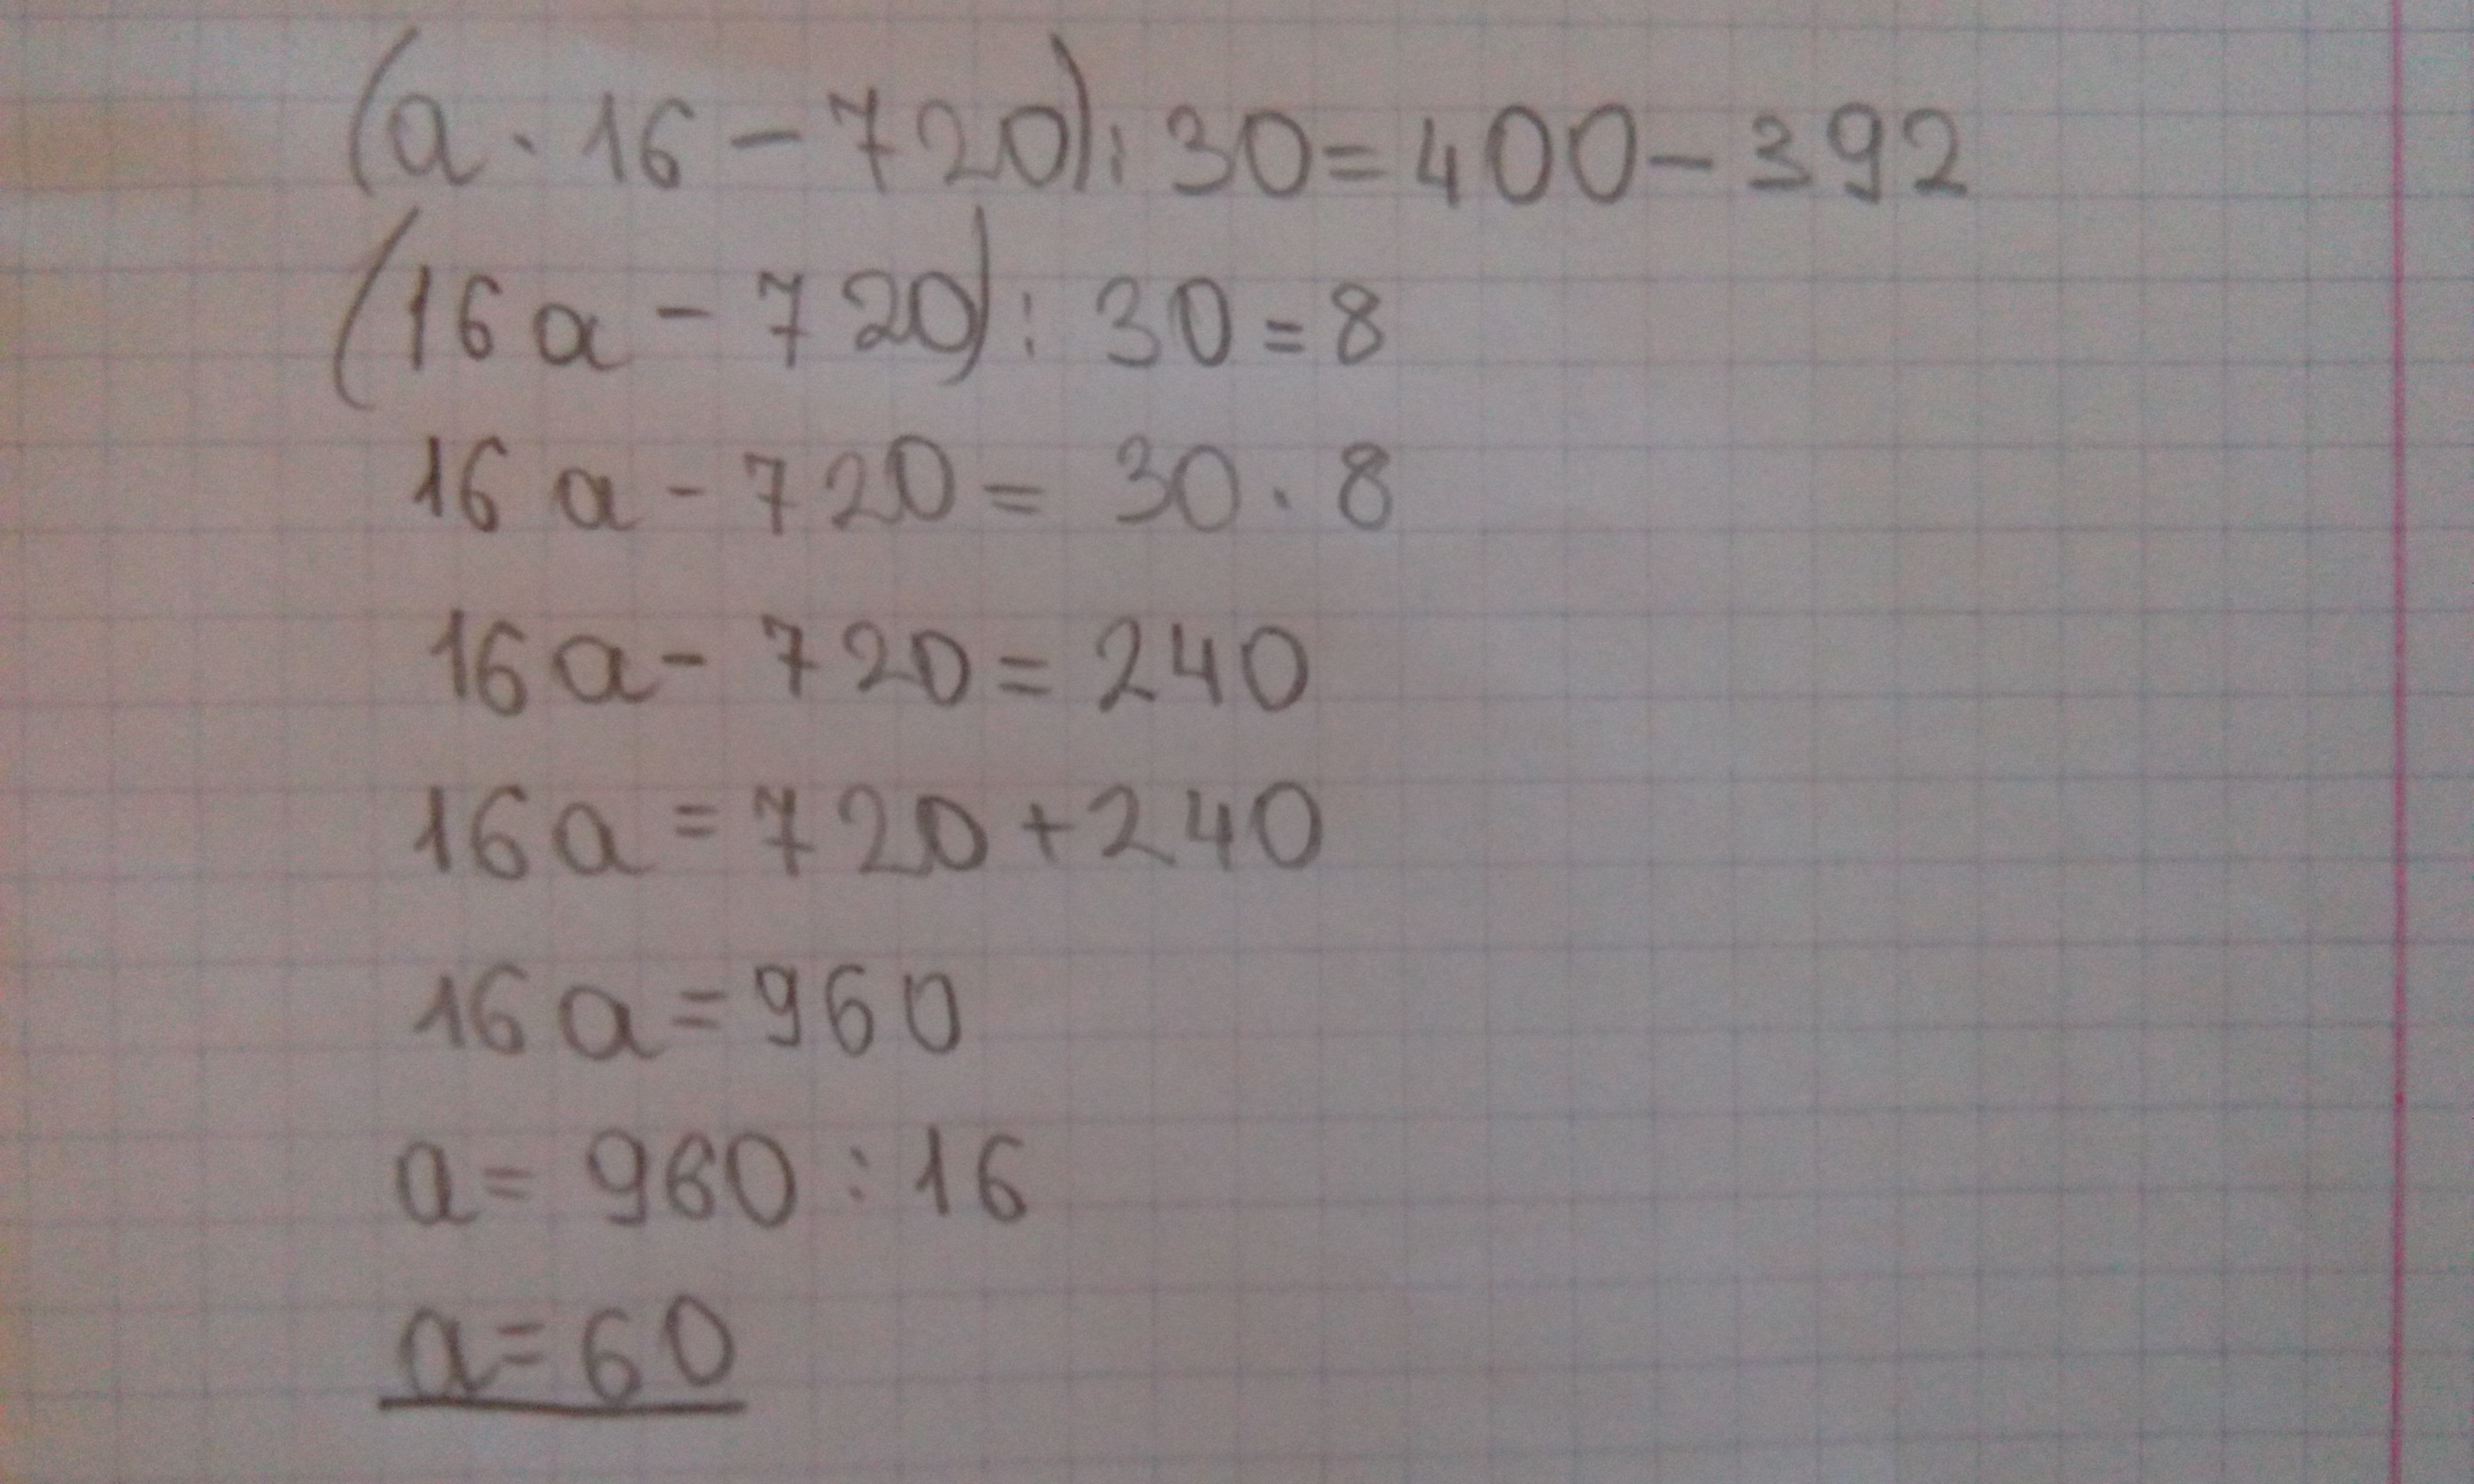 (a · 16 - 720) : 30 = 400 - 392
(16a - 720) : 30 = 8
16a - 720 = 30 · 8
16a - 720 = 240
16a = 720 + 240
16a = 960
a = 960 : 16
a = 60